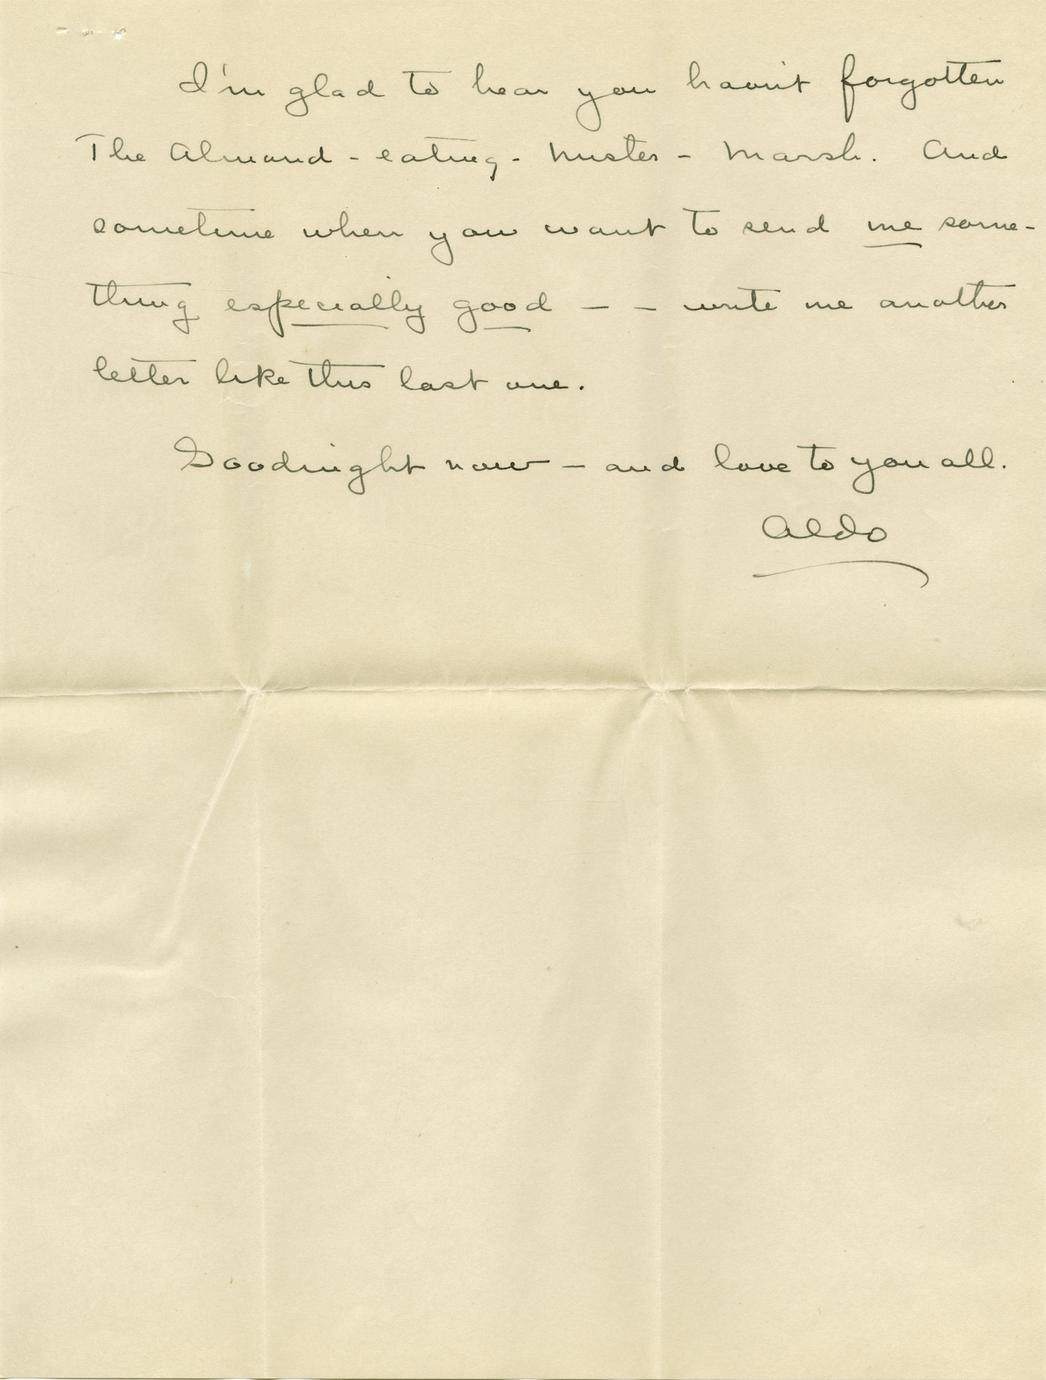 I'm glad to hear you havn't forgotten
The Almond - eating - Mister - Marsh. And
sometime when you want to send me some-
thing especially good - - write me another
letter like this last one.
Goodnight now - and love to you all.
Aldo